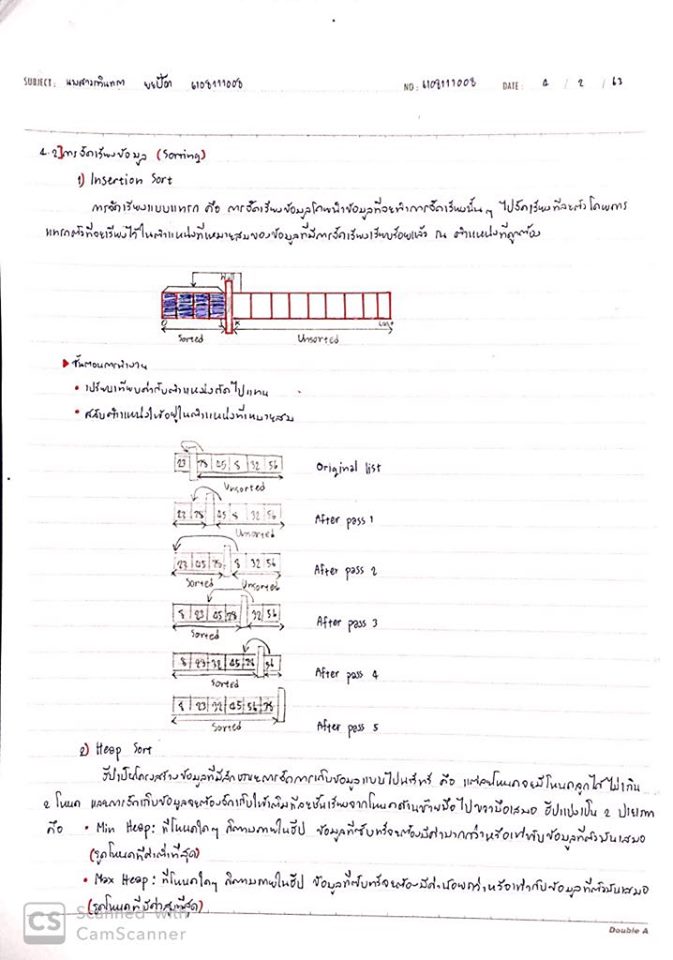 SUBJECT: นางสาวทินภา 6108111008 NO: 6108111008 DATE: 4 / 2 / 63
4.2] การจัดเรียงข้อมูล (Sorting)
1) Insertion Sort
การจัดเรียงแบบแทรก คือ การจัดเรียงข้อมูลโดยนำข้อมูลที่จะทำการจัดเรียงนั้นๆ ไปจัดเรียงทีละตัว โดยการ
แทรกตัวที่จะเรียงไว้ในตำแหน่งที่เหมาะสมของข้อมูลที่มีการจัดเรียงเรียบร้อยแล้ว ณ ตำแหน่งที่ถูกต้อง
0 K
Sorted Unsorted
ขั้นตอนการทำงาน
• เปรียบเทียบค่ากับตำแหน่งถัดไปแทน
• สลับตำแหน่งให้อยู่ในตำแหน่งที่เหมาะสม
23 78 45 8 32 56 Original list
Unsorted
23 78 45 8 32 56 After pass 1
Unsorted
23 45 78 8 32 56 After pass 2
Sorted Unsorted
8 23 45 78 32 56 After pass 3
Sorted
8 23 32 45 78 56 After pass 4
Sorted
8 23 32 45 56 78 After pass 5
Sorted
2) Heap Sort
ฮีปเป็นโครงสร้างข้อมูลที่มีลักษณะการจัดการเก็บข้อมูลแบบไบนารีทรี คือ แต่ละโหนดจะมีโหนดลูกได้ไม่เกิน
2 โหนด และการจัดเก็บข้อมูลจะต้องจัดเก็บให้เต็มทีละชั้นเรียงจากโหนดด้านซ้ายมือไปขวามือเสมอ ฮีปแบ่งเป็น 2 ประเภท
คือ • Min Heap: ที่โหนดใดๆ ก็ตามภายในฮีป ข้อมูลที่ซับทรีจะต้องมีค่ามากกว่าหรือเท่ากับข้อมูลที่ตัวมันเสมอ
(รูทโหนดมีค่าต่ำที่สุด)
• Max Heap: ที่โหนดใดๆ ก็ตามภายในฮีป ข้อมูลที่ซับทรีจะต้องมีค่าน้อยกว่าหรือเท่ากับข้อมูลที่ตัวมันเสมอ
(รูทโหนดมีค่าสูงที่สุด)
CS Scanned with
CamScanner
Double A